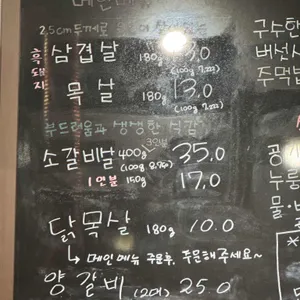 메인메뉴
2.5cm 두께로
흑돼지
삼겹살 180g 13.0
(100g 7.222)
목살 180g 13.0
(100g 7.222)
부드러움과 생생한 식감
소갈비살 400g 35.0
3인분
1인분 150g 17.0
닭목살 180g 10.0
↳ 메인메뉴 주문후, 주문해주세요~
양갈비 (2대) 25.0
구수한
주먹밥
누룽
물·